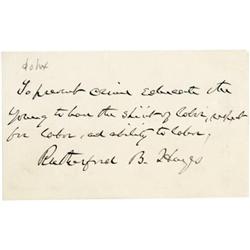 To prevent crime educate the
young to have the spirit of labor, respect
for labor, ad ability to labor,
Rutherford B. Hayes